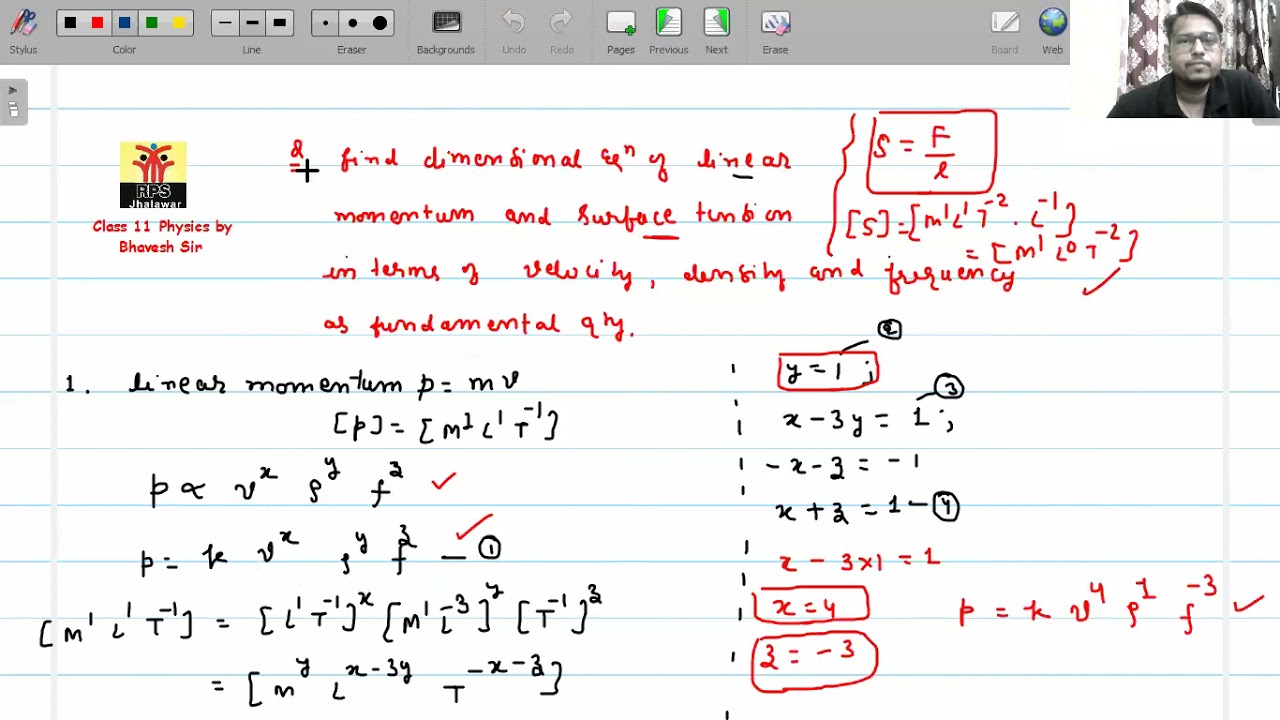 Stylus
Color
Line
Eraser
Backgrounds
Undo
Redo
Pages
Previous
Next
Erase
Board
Web
RPS
Jhalawar
Class 11 Physics by
Bhavesh Sir
Q find dimensional Eqⁿ of linear
momentum and surface tension
in terms of velocity, density and frequency
as fundamental q'ty.
S = F/l
[S] = [M¹L¹T⁻² · L⁻¹]
= [M¹ L⁰ T⁻²]
1. linear momentum p = mv
[p] = [M¹ L¹ T⁻¹]
p ∝ v^x ρ^y f^z
p = k v^x ρ^y f^z — ①
[M¹ L¹ T⁻¹] = [L¹ T⁻¹]^x [M¹ L⁻³]^y [T⁻¹]^z
= [M^y L^(x-3y) T^(-x-z)]
y = 1 ; ②
x - 3y = 1 ; ③
-x - z = -1
x + z = 1 — ④
x - 3×1 = 1
x = 4
z = -3
p = k v⁴ ρ¹ f⁻³